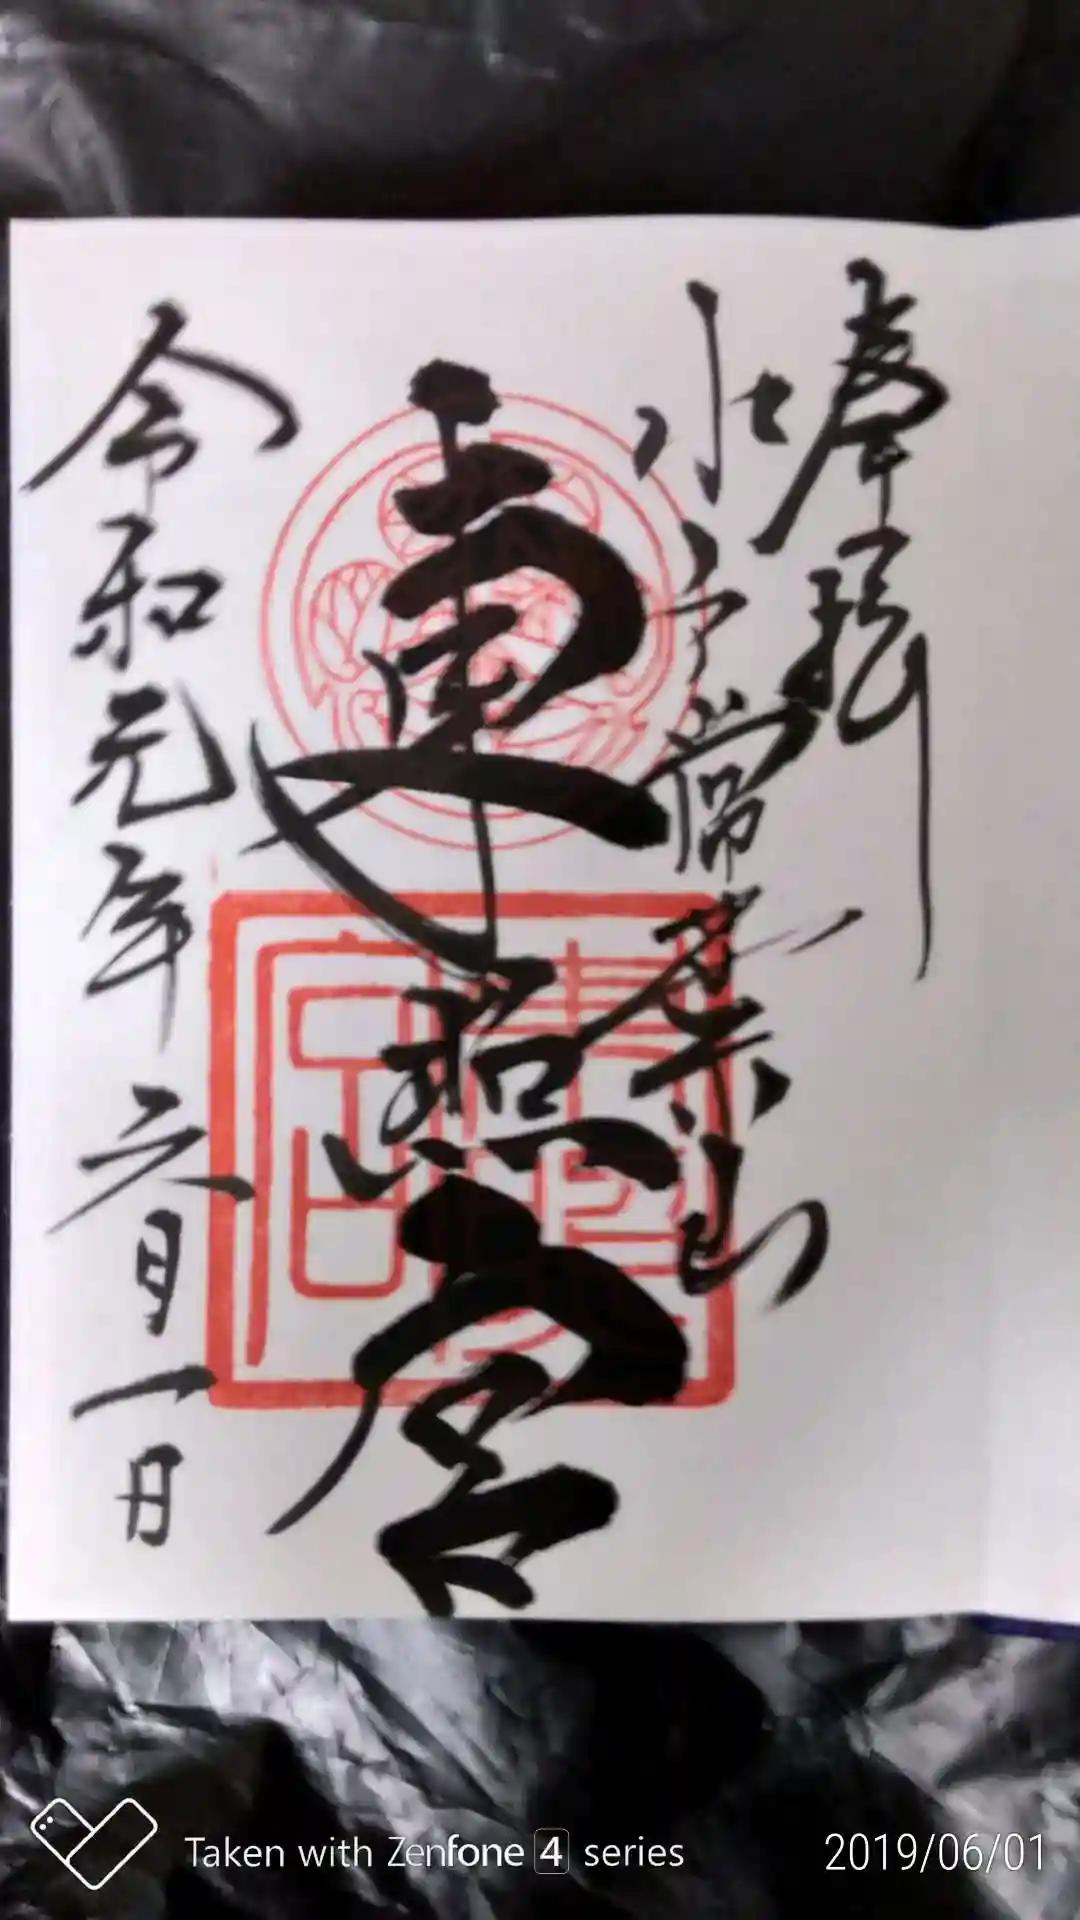 奉拝
水戸常葉山
東照宮
令和元年六月一日
東照宮
Taken with Zenfone 4 series
2019/06/01